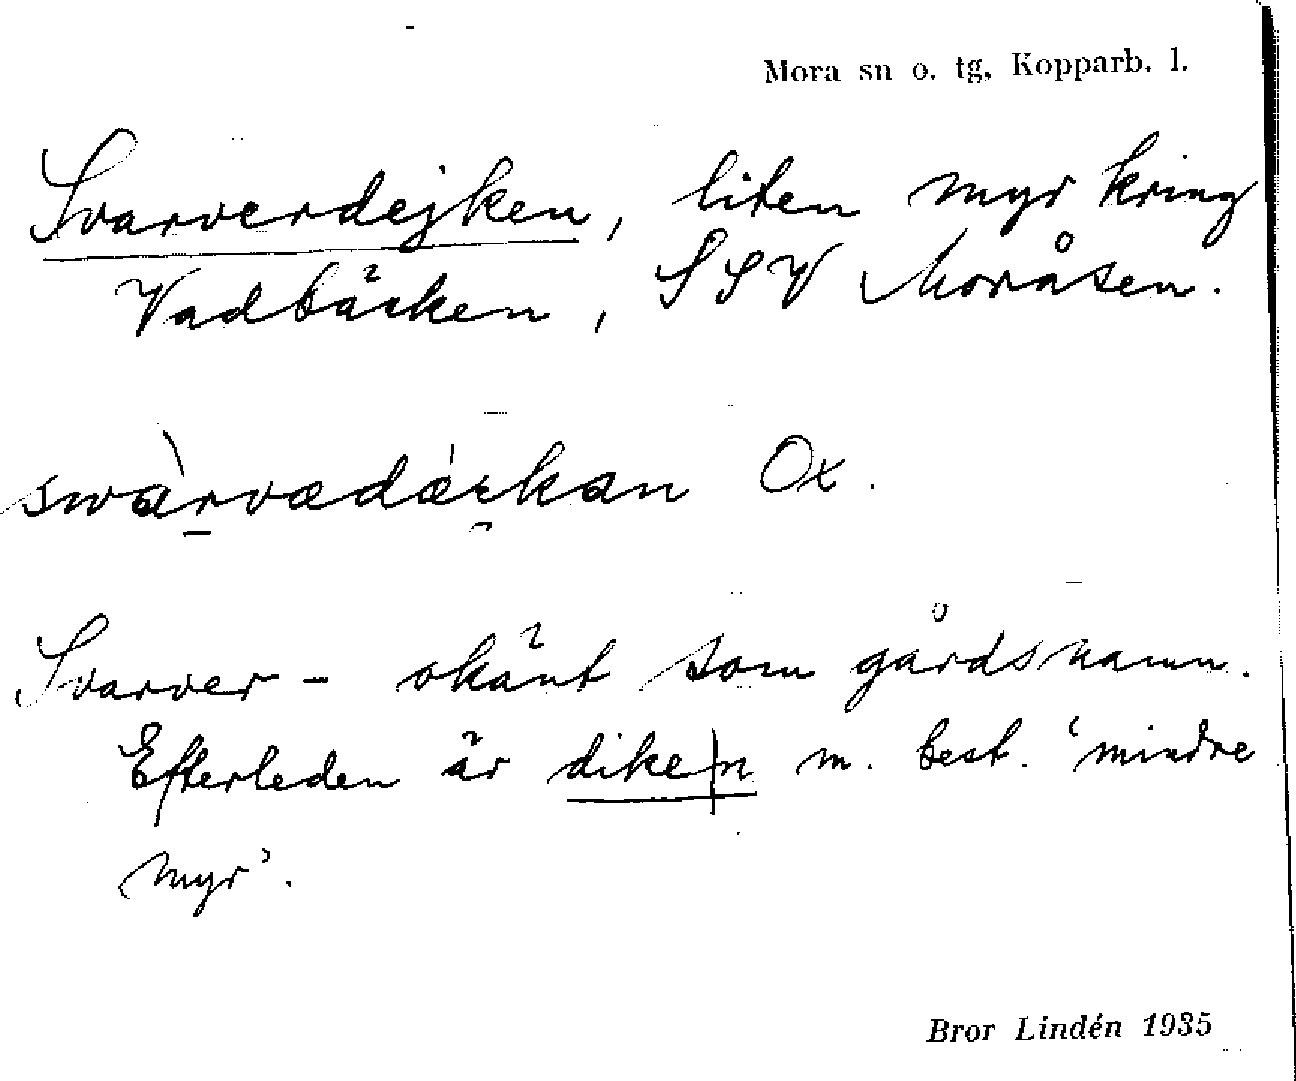 Mora sn o. tg, Kopparb. l.
Svarverdejken, liten myr kring
Vadbäcken, SSV Moråsen.
Ox.
Svarver- okänt som gårdsnamn.
Efterleden är dike|n m. best. 'mindre
myr'.
Bror Lindén 1935